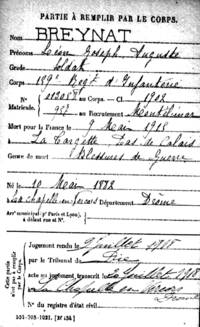 PARTIE À REMPLIR PAR LE CORPS.
Nom BREYNAT
Prénoms Léon Joseph Auguste
Grade Soldat
Corps 159e Regt d'Infanterie
N° au Corps. — Cl. 1902
Matricule. 957 au Recrutement Montélimar
Mort pour la France le 9 Mai 1915
à La Targette Pas de Calais
Genre de mort Blessures de Guerre
Né le 10 Mars 1882
à La Chapelle en Vercors Département Drôme
Arr' municipal (p' Paris et Lyon),
à défaut rue et N°.
Cette partie n'est pas à remplir par le Corps.
Jugement rendu le Juillet 1918
par le Tribunal de Die
acte ou jugement transcrit le Juillet 1918
à La Chapelle en Vercors
Drôme
N° du registre d'état civil